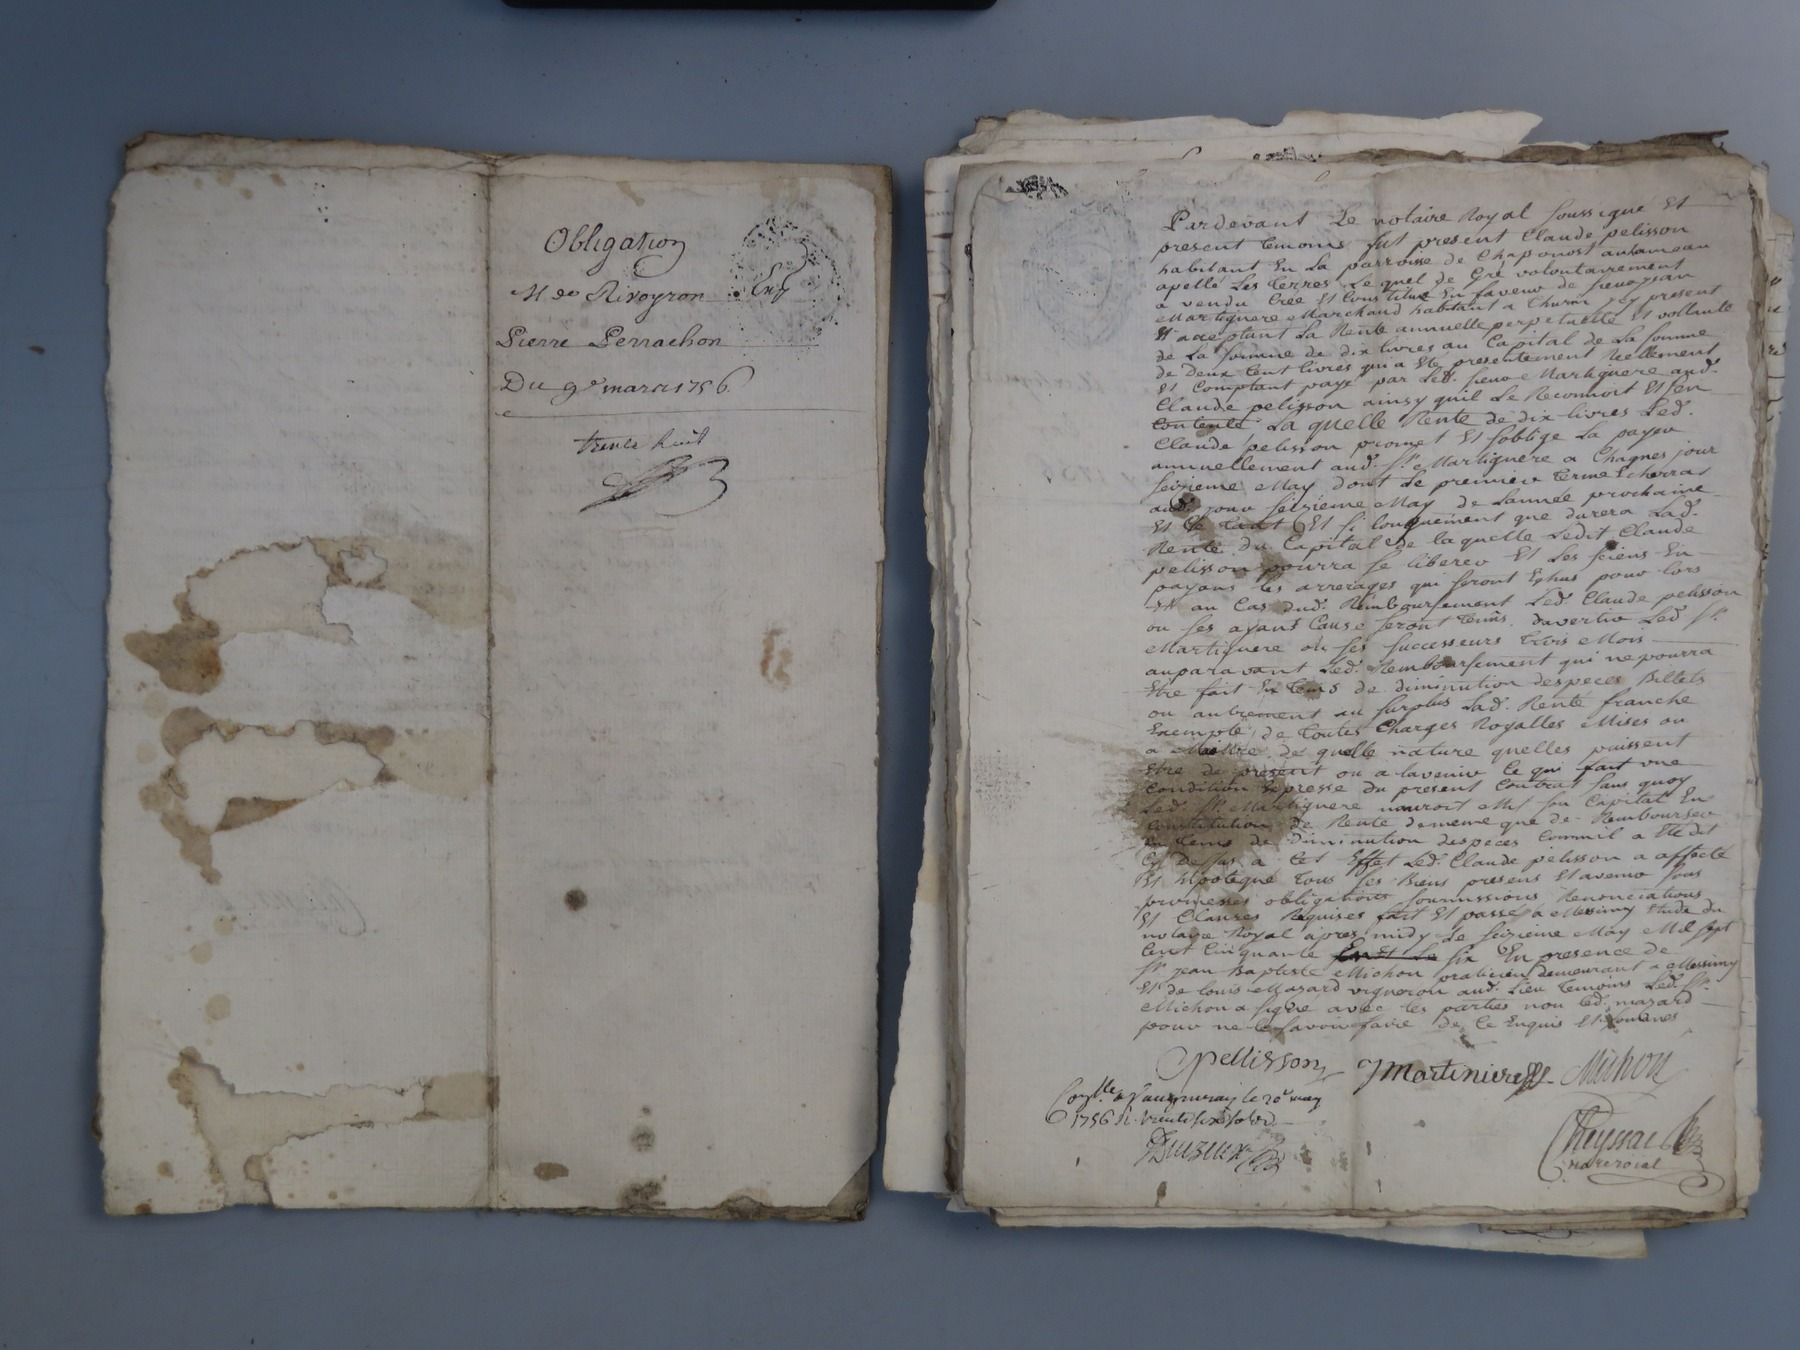 Obligation
M de Rivoyron
Pierre Perrachon
Du 9e mars 1756
trente huit
Pardevant Le notaire Royal soussigné Et
present temoins fut present Claude pelisson
habitant En La parroisse de Chaponost au hameau
apellé Les terres Le quel de Gré volontairement
a vendu Créé Et Constitué En faveur de sieur jean
Martignere Marchand habitant a Thurin jcy present
Et acceptant La Rente annuelle perpetuelle Et vollante
de La somme de dix livres au Capital de La somme
de Deux Cent livres qui a Eté presentement Reellement
Et Comptant payé par Led. sieur Martignere aud.
Claude pelisson ainsy quil Le Reconnoit Et sen
Contente La quelle Rente de dix livres Led.
Claude pelisson promet Et soblige La payer
annuellement aud. Sr. Martignere a Chaques jour
seizieme May dont Le premier terme Echerra
aud. jour seizieme May de Lannée prochaine
Et Et si longuement que durera Lad.
Rente du Capital de laquelle Ledit Claude
pelisson pourra se liberer Et Les siens En
payant les arrerages qui seront Echus pour lors
Et au Cas dud. Remboursement Led. Claude pelisson
ou ses ayant Cause seront tenus davertir Led Sr.
Martignere ou ses successeurs trois Mois
auparavant Led. Remboursement qui ne pourra
Etre fait En tems de diminution despeces Billets
ou autrement au surplus Lad. Rente franche
Exempte de toutes Charges Royalles Mises ou
a Mettre de quelle nature quelles puissent
Etre de present ou a lavenir Ce qui fait une
Condition Expresse du present Contrat sans quoy
Led. Sr. Martignere nauroit Mit son Capital En
Constitution de Rente demême que de Rembourser
En tems de diminution despeces Comm'il a Eté dit
Cy Dessus a Cet Effet Led. Claude pelisson a affecté
Et hipotequé tous ses Biens presens Et avenir sous
promesses obligations soumissions Renonciations
Et Clauses Requises fait Et passé a Messimy Etude du
notaire Royal apres midy Le seizieme May Mil sept
Cent Cinquante six En presence de
Sr. jean Baptiste Michon praticien demeurant a Messimy
Et de louis Mazard vigneron aud. Lieu temoins Led. Sr.
Michon a signé avec les parties non Led. mazard
pour ne le savoir faire de Ce Enquis Et
Cpellisson JMartiniere Michon
Conlle a Vaugneray le 20e may
1756 R. vingt six sols
Cheyssac
no re roial